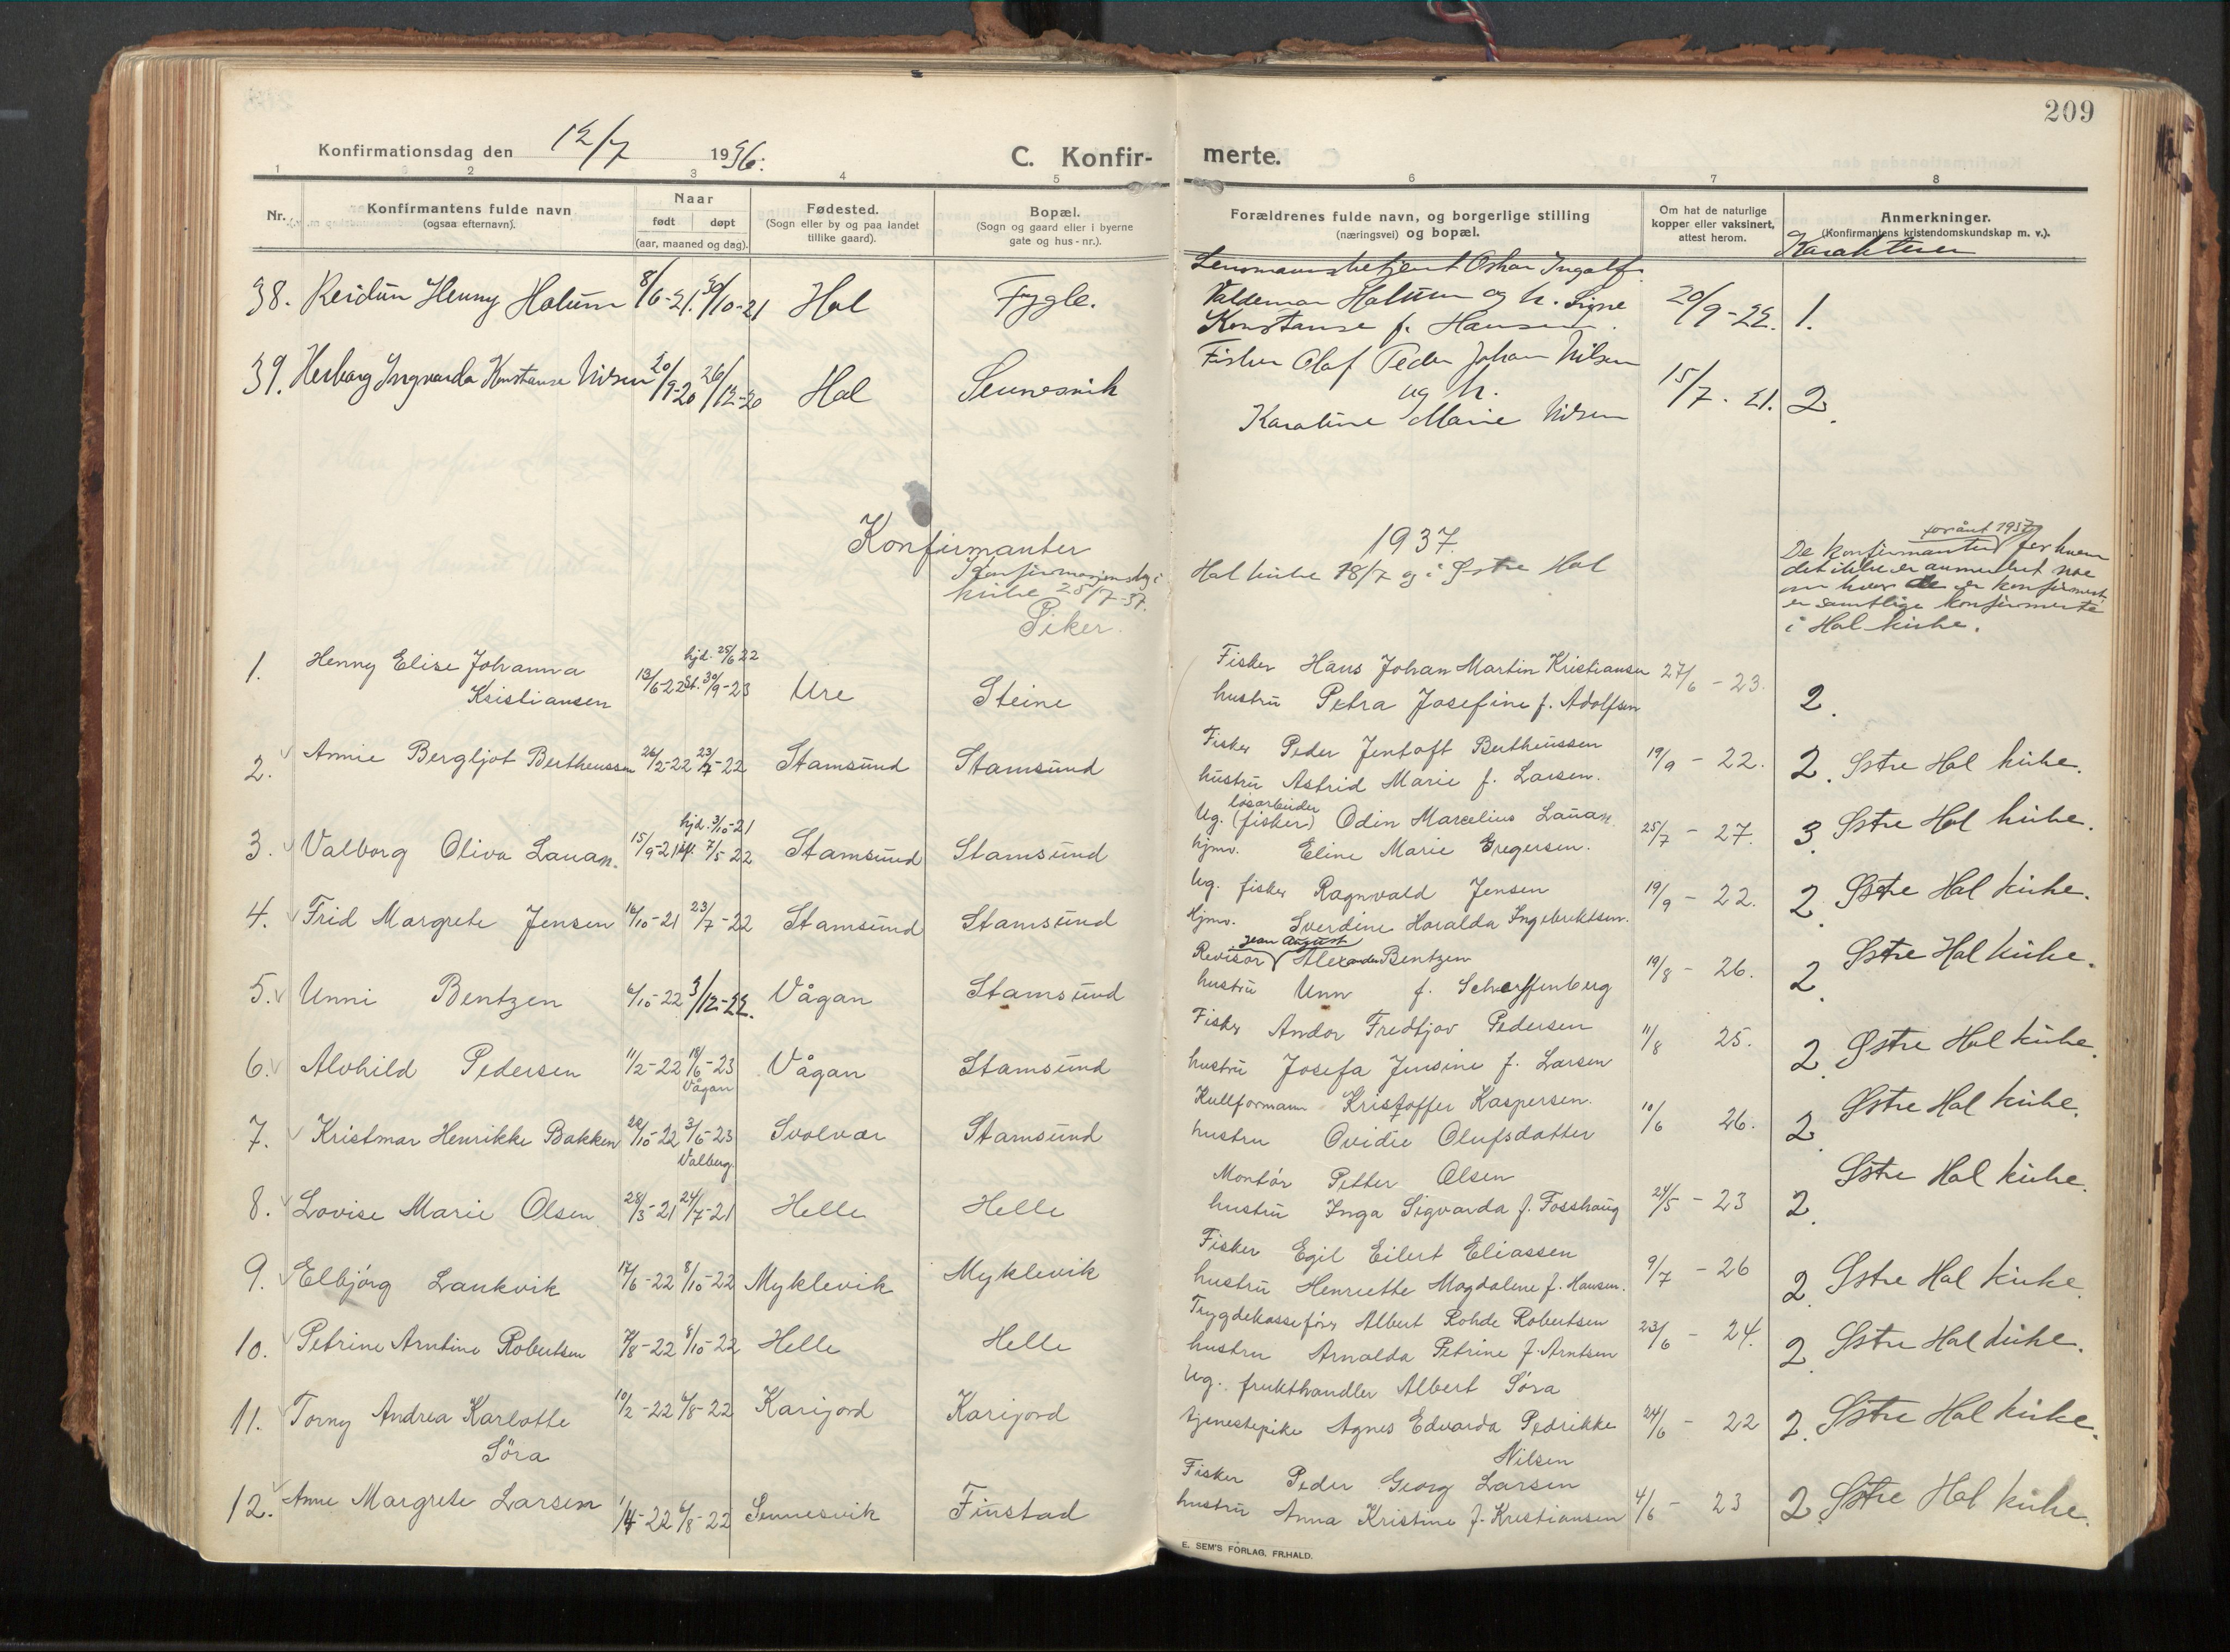 209
Konfirmationsdag den 12/7 1936.
C. Konfir-
merte.
1 2 3 4 5 6 7 8
Nr.
Konfirmantens fulde navn
(ogsaa efternavn).
Naar
født
døpt
(aar, maaned og dag).
Fødested.
(Sogn eller by og paa landet
tillike gaard).
Bopæl.
(Sogn og gaard eller i byerne
gate og hus-nr.).
Forældrenes fulde navn, og borgerlige stilling
(næringsvei) og bopæl.
Om hat de naturlige
kopper eller vaksinert,
attest herom.
Anmerkninger.
(Konfirmantens kristendomskundskap m. v.).
Karakterer
Lensmannsbetjent Oskar Ingolf
38. Reidun Henny Holum 8/6-21. 30/10-21 Hol Fygle. Valdemar Holum og h. Signe 20/9-22. 1.
Konstanse f. Hansen.
39. Herborg Ingvarda Konstanse Nilsen 20/9-20 26/12-20 Hol Sennesvik Fisker Olaf Peder Johan Nilsen 15/7. 21. 2.
og h.
Karoline Marie Nilsen
Konfirmanter 1937.
Konfirmasjonsdag i Hol kirke 18/7 og i Østre Hol
kirke 25/7-37.
Piker.
for året 1937
De konfirmanter for hvem
det ikke er anmerket noe
om hvor de er konfirmert,
er samtlige konfirmerte
i Hol kirke.
1. Henny Elise Johanna hjd. 25/6 22 Fisker Hans Johan Martin Kristiansen 27/6 - 23.
Kristiansen 13/6-22 st. 30/9-23 Ure Steine hustru Petra Josefine f. Adolfsen 2.
2. Annie Bergljot Bertheussen 26/2-22 23/7-22 Stamsund Stamsund Fisker Peder Jentoft Bertheussen 19/9 - 22. 2. Østre Hol kirke.
hustru Astrid Marie f. Larsen.
løsarbeider
3. Valborg Oliva Lauan. 15/9-21 hjd. 3/10-21 7/5-22 Stamsund Stamsund Ug. (fisker) Odin Marcelius Lauan. 25/7 - 27. 3. Østre Hol kirke.
hjmv. Eline Marie Gregersen.
4. Frid Margrete Jensen 16/10-21 23/7-22 Stamsund Stamsund Ug. fisker Ragnvald Jensen 19/9 - 22. 2. Østre Hol kirke.
Hjmv. Sverdine Haralda Ingebriktsen.
Jean August
5. Unni Bentzen 6/10-22 3/12-22. Vågan Stamsund Revisor Alexander Bentzen 19/8 - 26. 2. Østre Hol kirke.
hustru Unn f. Scharffenberg
6. Alvhild Pedersen 11/2-22 18/6-23 Vågan Vågan Stamsund Fisker Andor Fredtjov Pedersen 11/8 25. 2. Østre Hol kirke.
hustru Josefa Jensine f. Larsen
7. Kristmar Henrikke Bakken 20/10-22 3/6-23 Valberg. Svolvær Stamsund Kullformann Kristoffer Kaspersen. 10/6 26. 2. Østre Hol kirke.
hustru Ovidie Olufsdatter
8. Lovise Marie Olsen 28/3-21 24/7-21 Helle Helle Montør Petter Olsen 24/5 - 23 2. Østre Hol kirke.
hustru Inga Sigvarda f. Fosshaug
9. Elbjørg Lankvik 17/6-22 8/10-22 Myklevik Myklevik Fisker Egil Eilert Eliassen 9/7 - 26 2. Østre Hol kirke
hustru Henriette Magdalene f. Hansen.
10. Petrine Arntine Robertsen 7/8-22 8/10-22 Helle Helle Trygdekassefører Albert Rohde Robertsen 23/6 - 24. 2. Østre Hol kirke.
hustru Arnolda Petrine f. Arntsen
11. Torny Andrea Karlotte 10/2-22 6/8-22 Karijord Karijord Ug. frukthandler Albert Søra
Søra tjenestepike Agnes Edvarda Pedrikke 24/6 - 22 2. Østre Hol kirke.
Nilsen
12. Anne Margrete Larsen 1/4-22 6/8-22 Sennesvik Finstad Fisker Peder Georg Larsen
hustru Anna Kristine f. Kristiansen 4/6 - 23 2. Østre Hol kirke.
E. SEM'S FORLAG, FR.HALD.